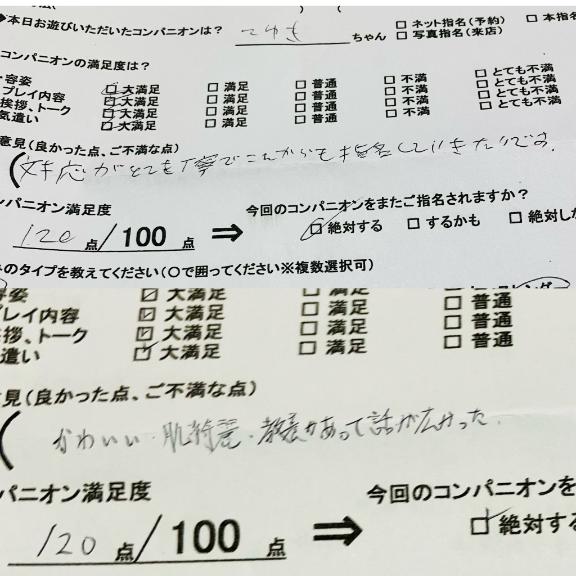 ◆本日お遊びいただいたコンパニオンは? こゆき ちゃん □ ネット指名(予約) □ 本指名
□ 写真指名(来店)
コンパニオンの満足度は?
容姿 □ 大満足 □ 満足 □ 普通 □ 不満 □ とても不満
プレイ内容 □ 大満足 □ 満足 □ 普通 □ 不満 □ とても不満
挨拶、トーク □ 大満足 □ 満足 □ 普通 □ 不満 □ とても不満
気遣い □ 大満足 □ 満足 □ 普通 □ 不満 □ とても不満
意見(良かった点、ご不満な点)
(対応がとても丁寧でこれからも指名していきたいです。
ンパニオン満足度 今回のコンパニオンをまたご指名されますか?
120 点/100 点 ⇒ □ 絶対する □ するかも □ 絶対し
みのタイプを教えてください(〇で囲ってください※複数選択可)
容姿 ☑ 大満足 □ 満足 □ 普通
プレイ内容 ☑ 大満足 □ 満足 □ 普通
挨拶、トーク ☑ 大満足 □ 満足 □ 普通
遣い ☑ 大満足 □ 満足 □ 普通
見(良かった点、ご不満な点)
(かわいい・肌綺麗・教養があって話が広かった
パニオン満足度 今回のコンパニオンを
120 点/100 点 ⇒ ☑ 絶対する